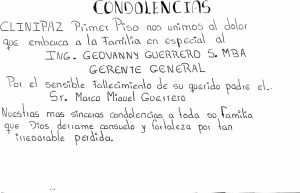 CONDOLENCIAS
CLINIPAZ Primer Piso nos unimos al dolor
que embarca a la familia en especial al
ING. GEOVANNY GUERRERO S. MBA
GERENTE GENERAL
Por el sensible fallecimiento de su querido padre el..
Sr. Marco Miguel Guerrero
Nuestras mas sinceras condolencias a toda su familia
que Dios derrame consuelo y fortaleza por tan
irreparable perdida.